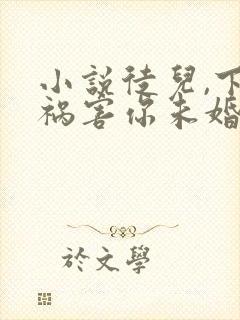 小說徒兒,下
禍害你未婚
於文學